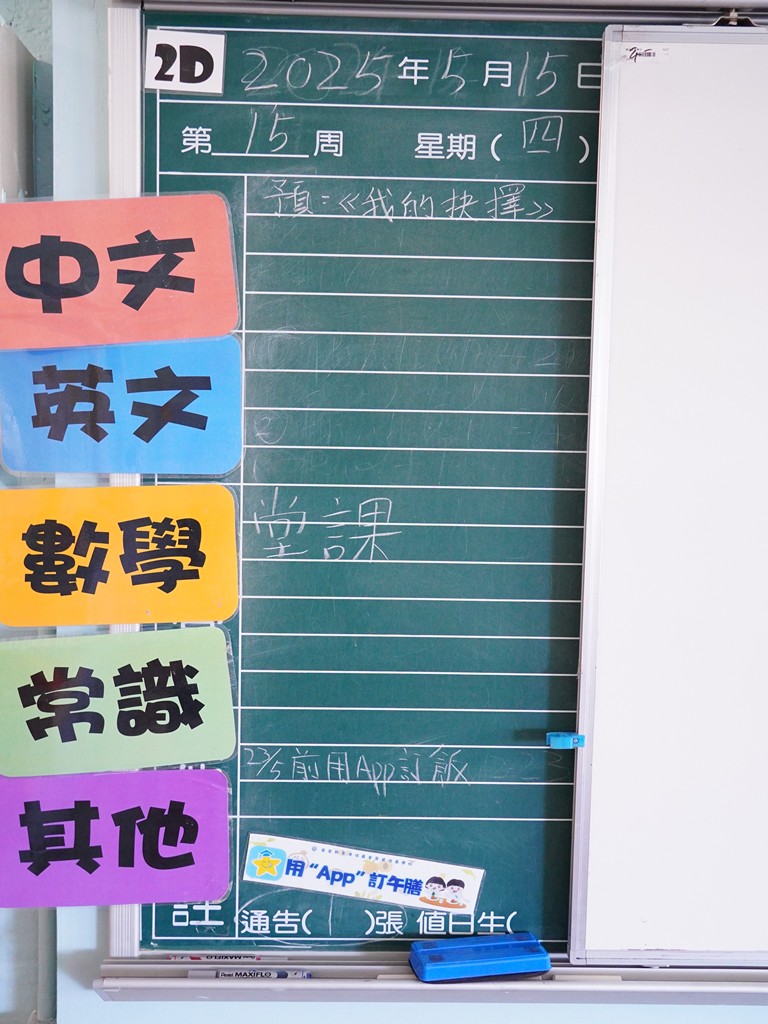 2D
2025年5月15日
第15周 星期(四)
預:《我的抉擇》
中文
英文
數學
堂課
常識
23/5前用App訂飯
其他
用“App”訂午膳
註 通告( )張 值日生(
Pentel MAXIFLO